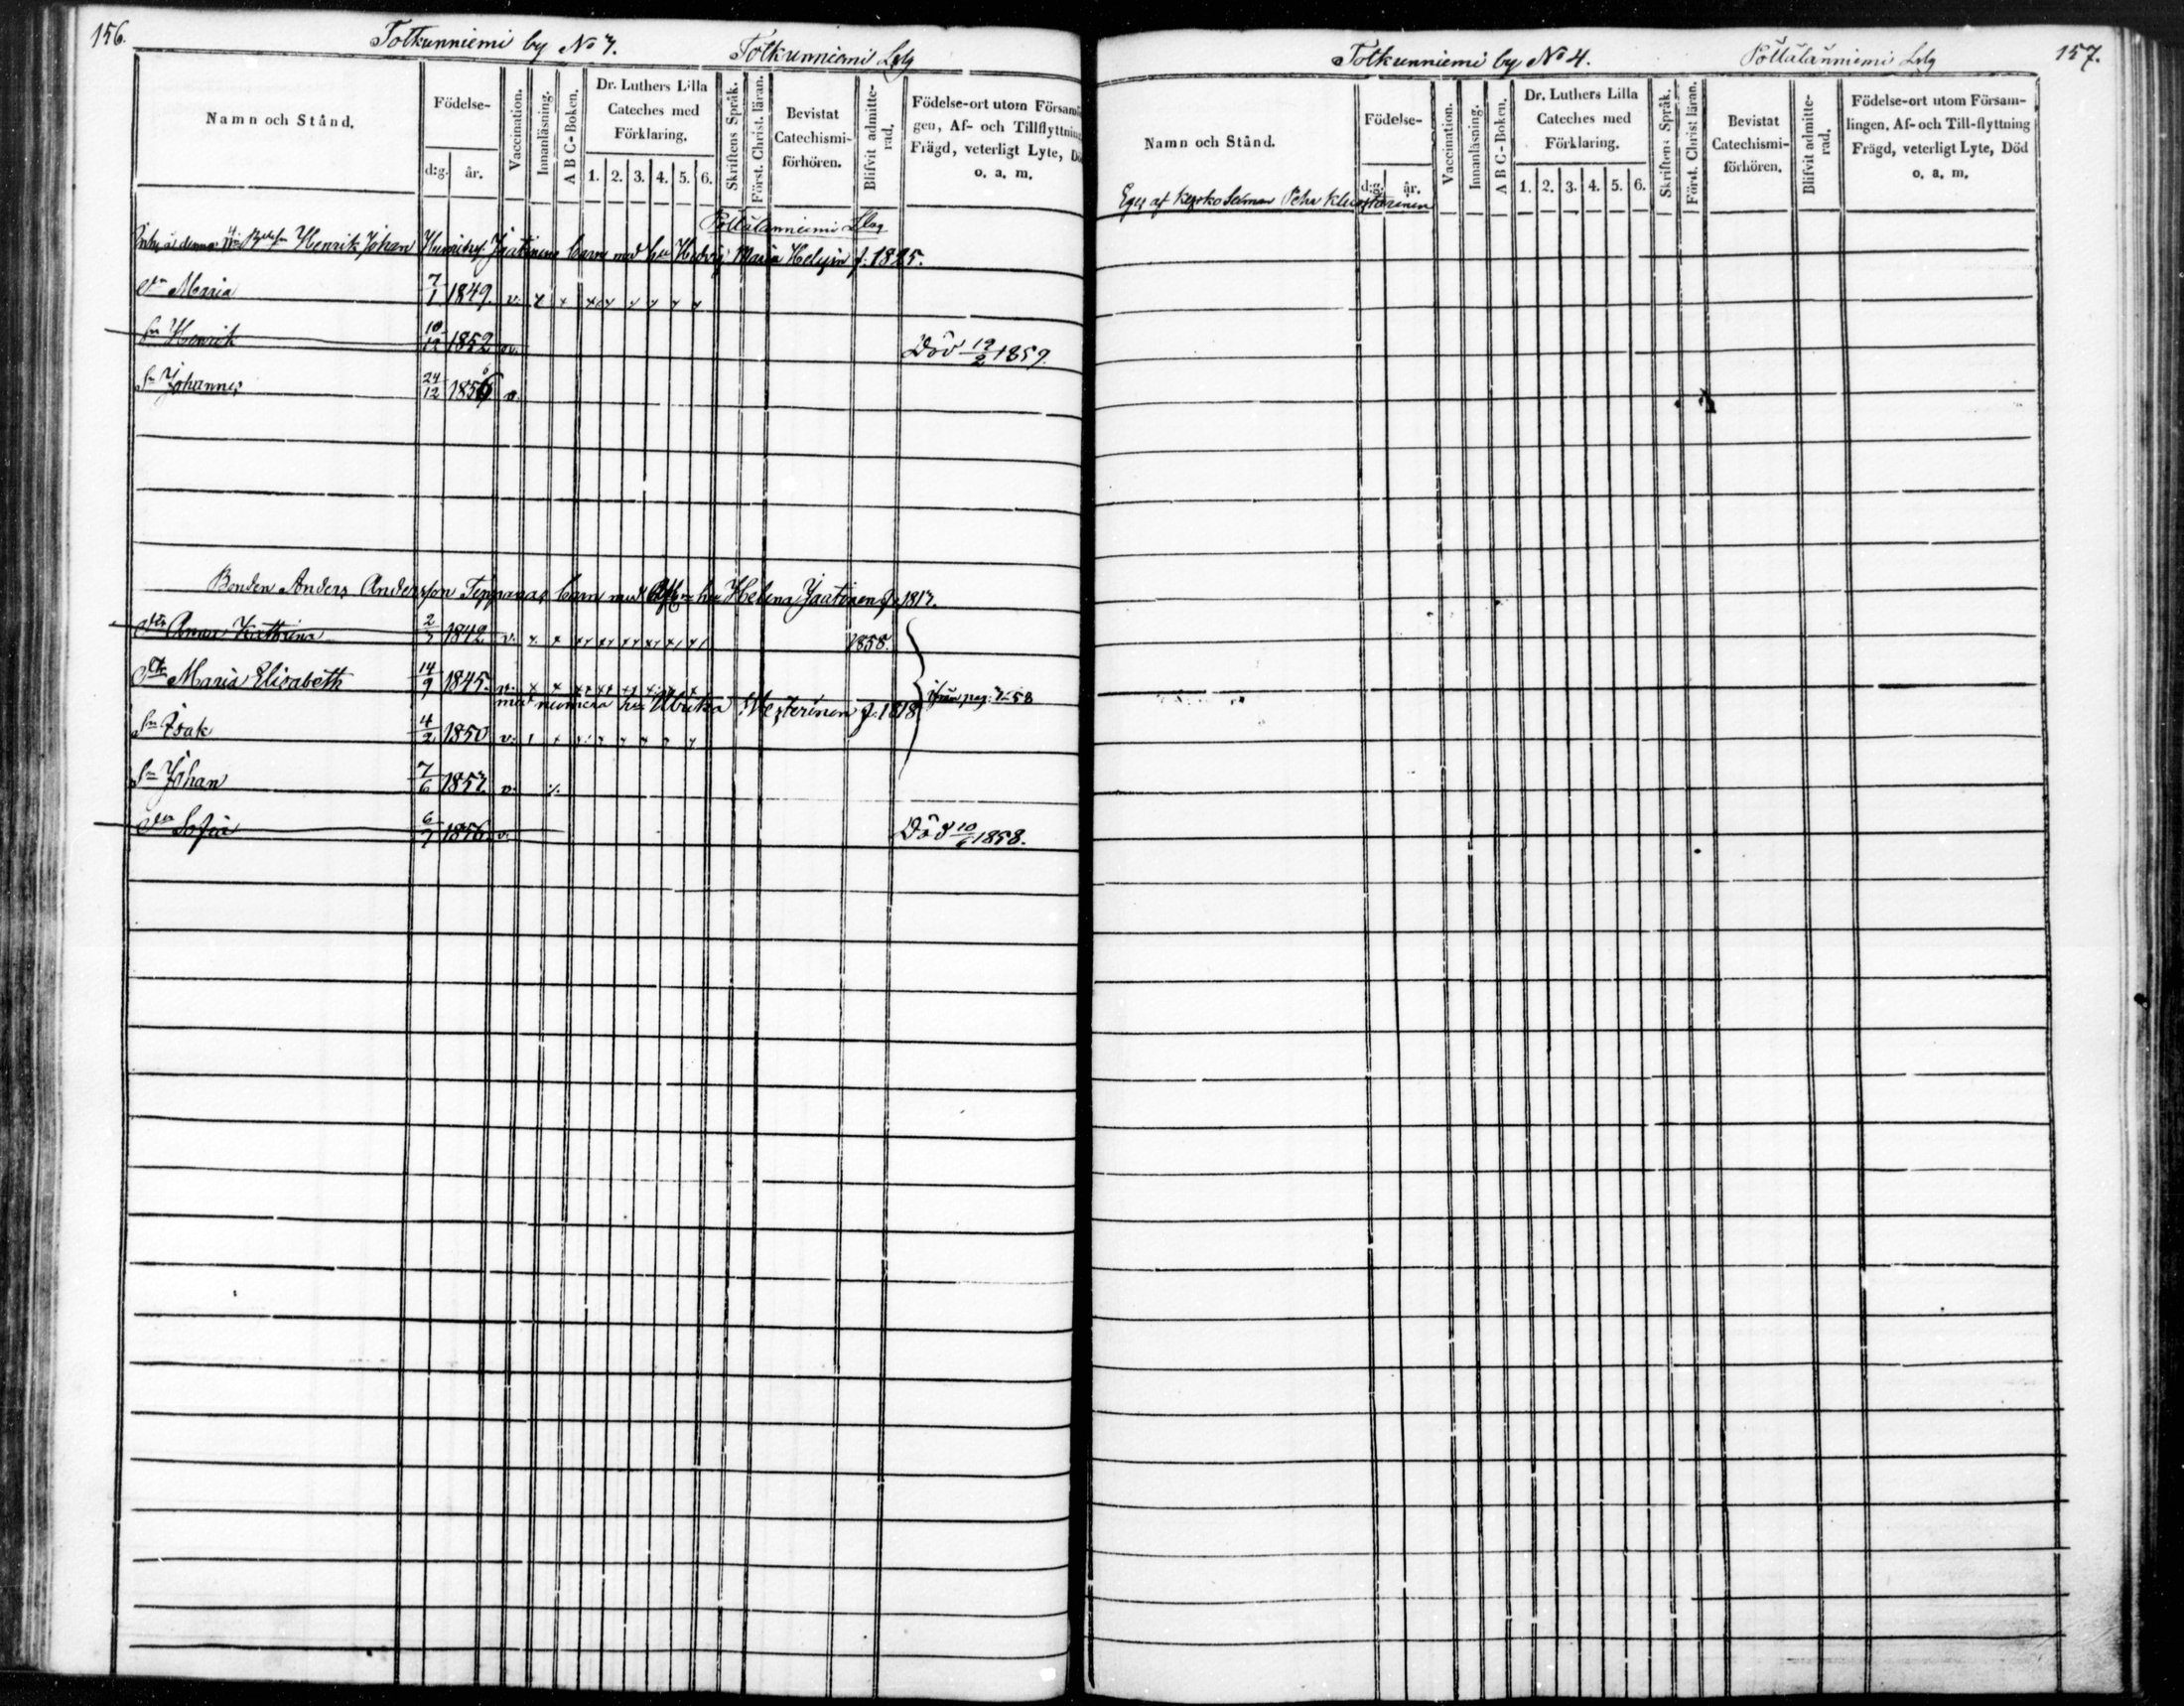 156.
Tolkunniemi by No 7. Tolkunniemi Ldg
Namn och Stånd.
Födelse-
d:g. år.
Vaccination.
Innanläsning.
A B C-Boken.
Dr. Luthers Lilla Cateches med Förklaring.
1. 2. 3. 4. 5. 6.
Skriftens Språk.
Först. Christ. läran.
Bevistat Catechismi-förhören.
Blifvit admitte-rad.
Födelse-ort utom Församl
gen, Af- och Tillflyttning
Frägd, veterligt Lyte, Dö
o. a. m.
Henrik Johan Jaatinens barn med hu Hedvig Maria Helgin f. 1825.
dr Maria 7/1 1849. v.
Sn Henrik 10/12 1852 v. Död 19/2 1859.
Sn Johannes 24/12 1856 v.
Bonden Anders Andersson Teppanas barn med hu Helena Jaatinen f. 1817.
dr Anna Kathrina 1842. v. 1858.
dr Maria Elisabeth 14/9 1845. v.
med nuvnera hu Ulrika Westerinen f. 1818
Sn Isak 4/2 1850 v.
Sn Johan 7/6 1857 v.
dr Sofia 6/7 1856 v. Död 10/6 1858.
Tolkunniemi by No 4. Pöllälänniemi Ldg
157.
Namn och Stånd.
Födelse-
d:g. år.
Vaccination.
Innanläsning.
A B C-Boken.
Dr. Luthers Lilla Cateches med Förklaring.
1. 2. 3. 4. 5. 6.
Skriftens Språk.
Först. Christ läran.
Bevistat Catechismi-förhören.
Blifvit admitte-rad.
Födelse-ort utom Försam-
lingen, Af- och Till-flyttning
Frägd, veterligt Lyte, Död
o. a. m.
Eges af